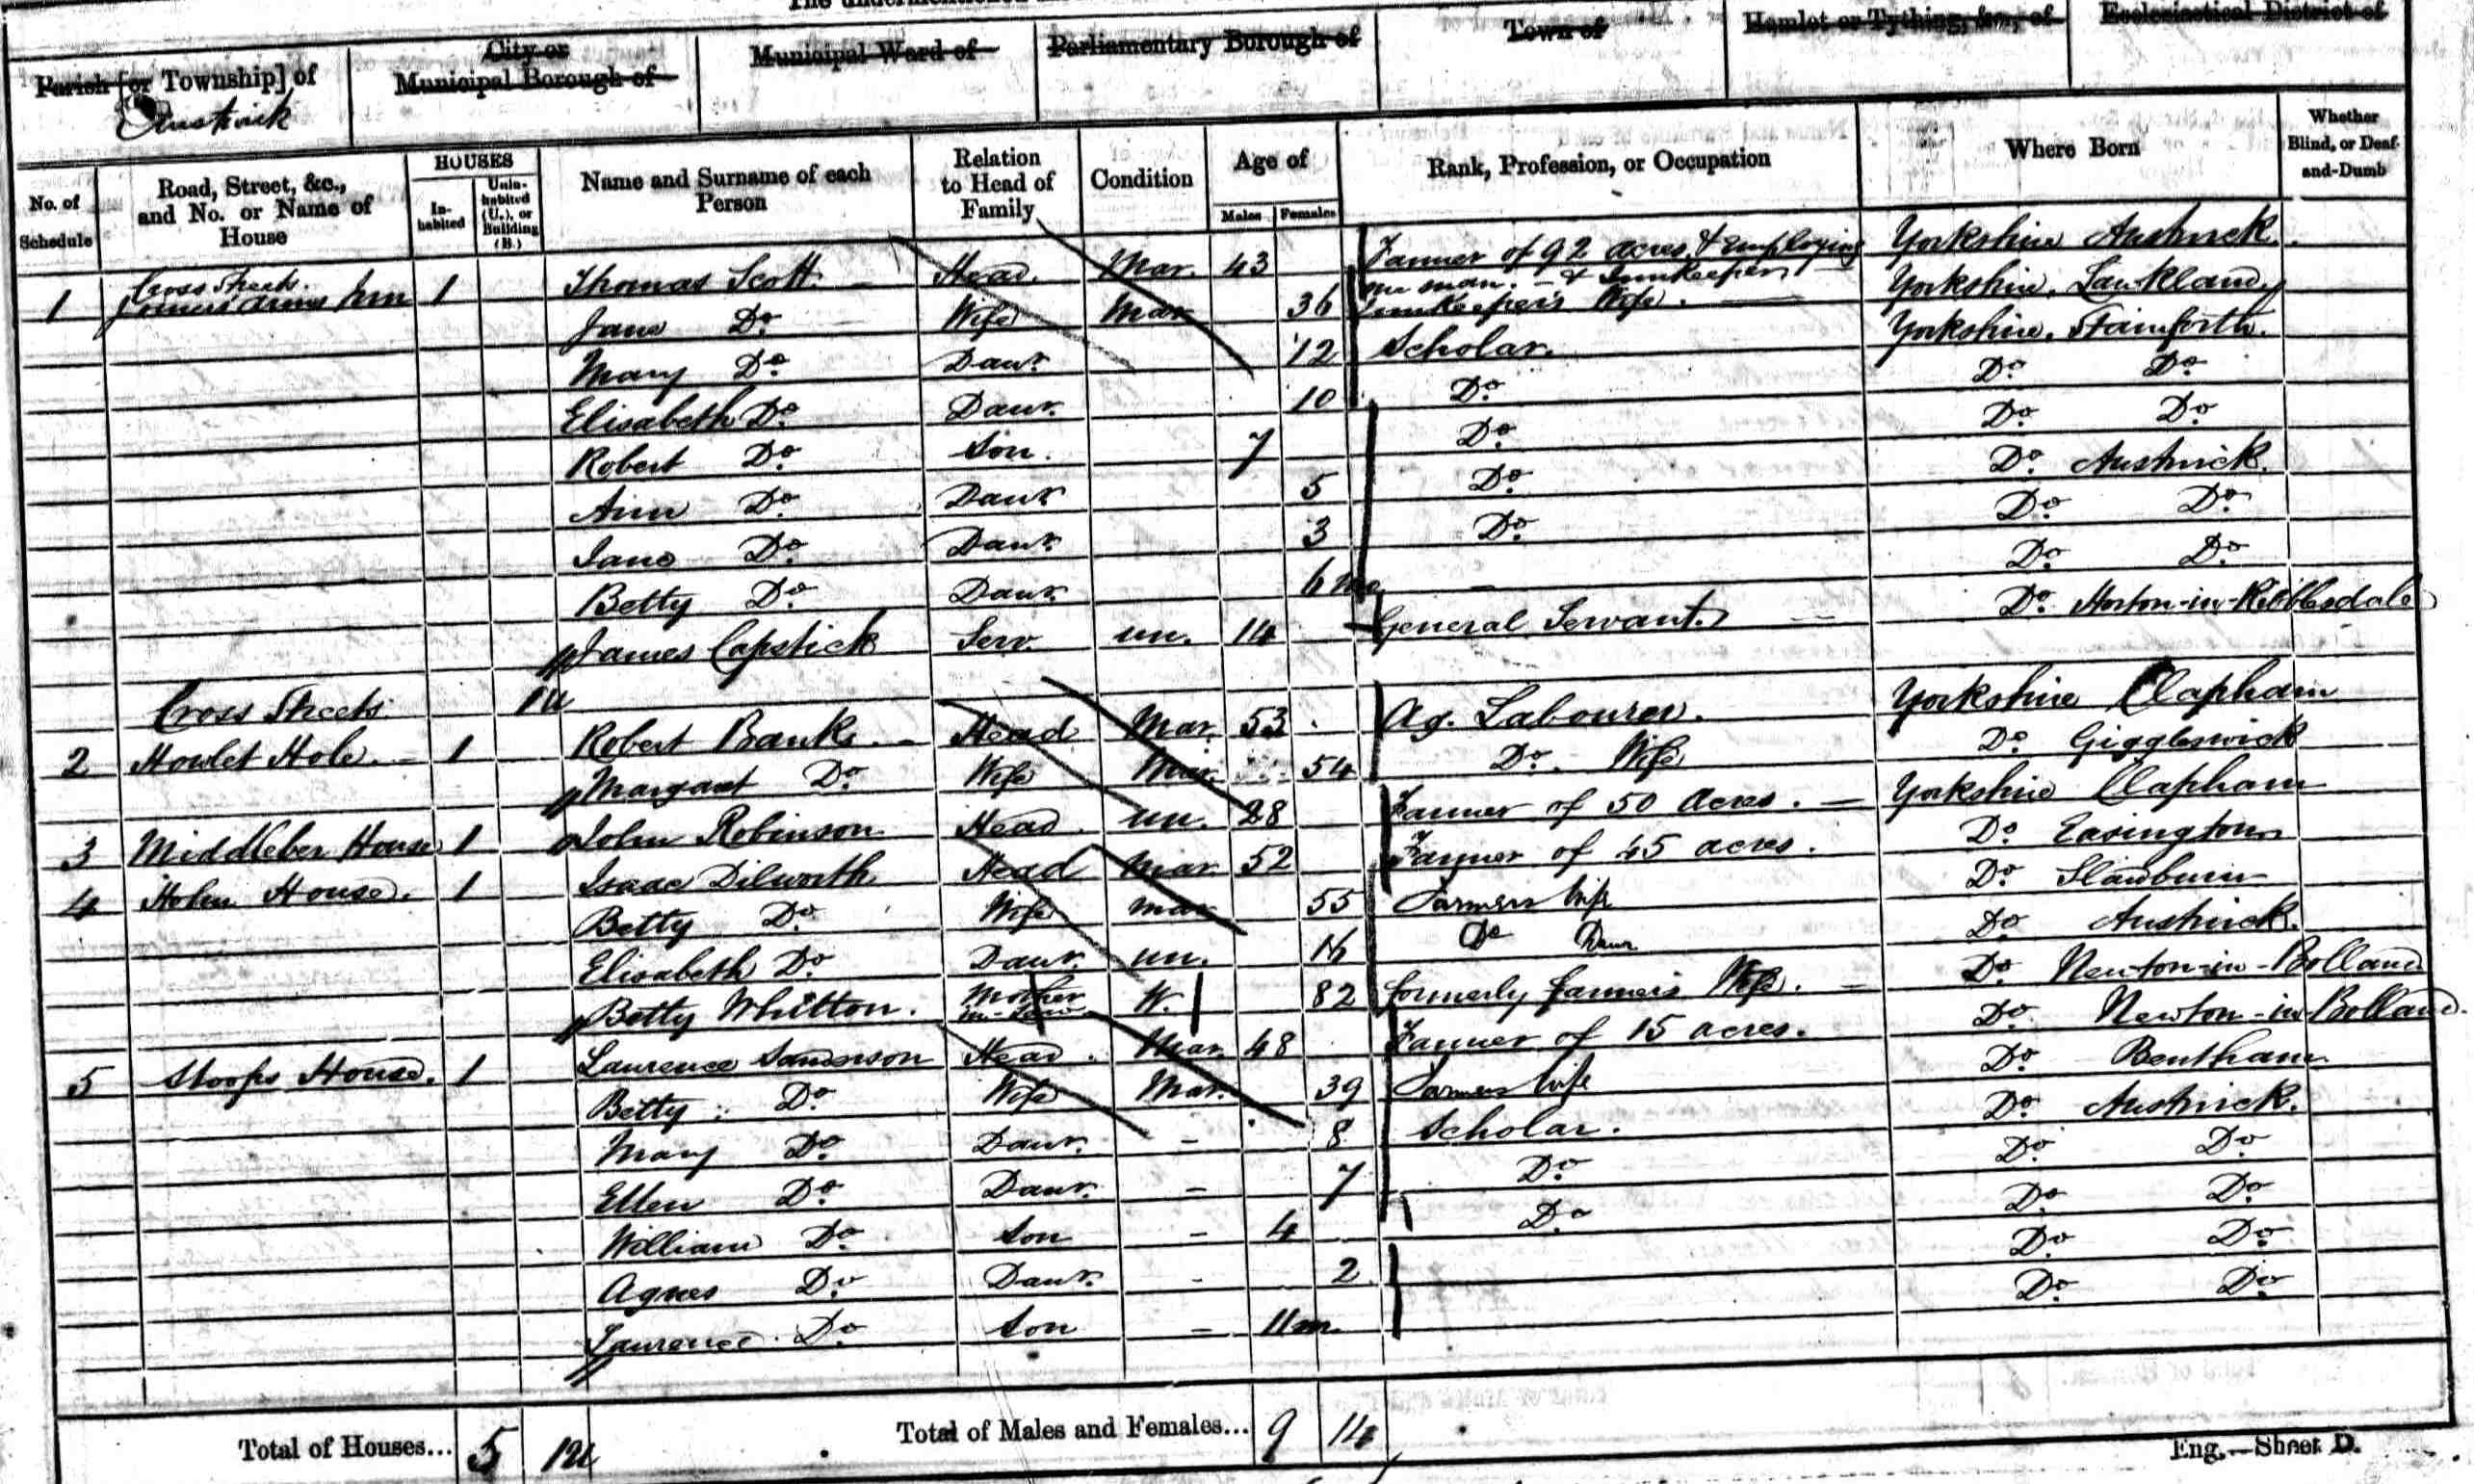 The undermentioned
Parish [or Township] of
City or Municipal Borough of
Municipal Ward of
Parliamentary Borough of
Town of
Hamlet or Tything, &c., of
Ecclesiastical District of
Austwick
No. of Schedule
Road, Street, &c., and No. or Name of House
HOUSES
Inhabited
Uninhabited (U.), or Building (B.)
Name and Surname of each Person
Relation to Head of Family
Condition
Age of
Males
Females
Rank, Profession, or Occupation
Where Born
Whether Blind, or Deaf-and-Dumb
1 Cross Streets. Arms Inn 1 Thomas Scott Head. Mar. 43 Farmer of 92 acres & employing one man. & Innkeeper Yorkshire Austwick
Jane Do. Wife Mar 36 Innkeeper's Wife. Yorkshire. Lawkland.
Mary Do. Daur. 12 Scholar. Yorkshire. Stainforth.
Elisabeth Do. Daur. 10 Do. Do. Do.
Robert Do. Son. 7 Do. Do. Do.
Ann Do. Daur. 5 Do. Do. Austwick.
Jane Do. Daur. 3 Do. Do. Do.
Betty Do. Daur. 6 mo Do. Do.
James Capstick Serv. un. 14 General Servant. Do. Horton-in-Ribblesdale
Cross Streets 1U
2 Howlet Hole. 1 Robert Banks. Head Mar. 53 Ag. Labourer. Yorkshire Clapham
Margaret Do. Wife Mar. 54 Do. Wife Do. Giggleswick
3 Middleber House 1 John Robinson Head un. 28 Farmer of 50 Acres. Yorkshire Clapham
4 Holm House. 1 Isaac Dilworth Head Mar 52 Farmer of 45 acres. Do. Easington
Betty Do. Wife Mar 55 Farmers Wife Do. Slaidburn
Elisabeth Do. Daur. un. 16 Do Daur Do. Austwick.
Betty Whitton. Mother in-Law W. 82 formerly farmer's Wife. Do. Newton-in-Bolland
5 Stoops House. 1 Laurence Sanderson Head. Mar. 48 Farmer of 15 acres. Do. Newton-in-Bolland.
Betty Do. Wife Mar. 39 Farmers Wife Do. Bentham
Mary Do. Daur. - 8 Scholar. Do. Austwick.
Ellen Do. Daur. - 7 Do. Do. Do.
William Do. Son - 4 Do. Do. Do.
Agnes Do. Daur. - 2 Do. Do.
Laurence Do. Son - 11m. Do. Do.
Total of Houses... 5 1U Total of Males and Females... 9 14
Eng.—Sheet D.